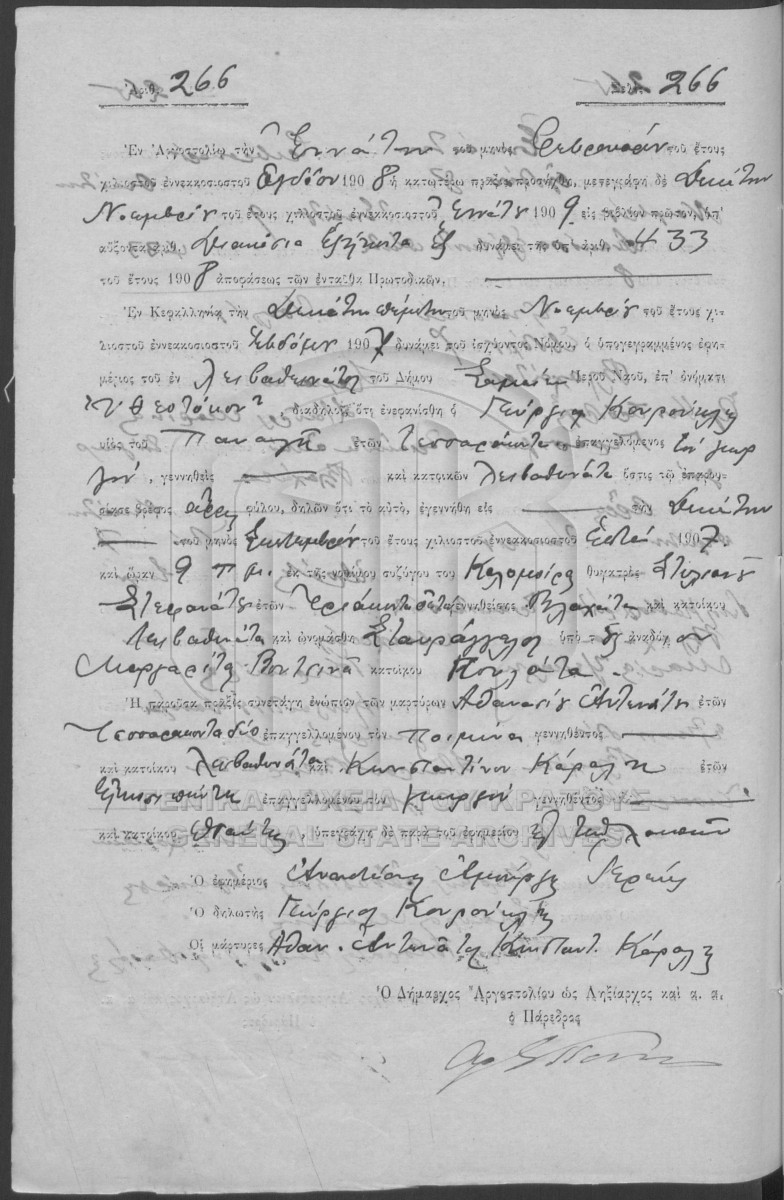 Ἀριθ. 266 Σελὶς 266
Ἐν Ἀργοστολίῳ τὴν Ἐννάτην τοῦ μηνὸς Φεβρουαρίου τοῦ ἔτους
χιλιοστοῦ ἐννεακοσιοστοῦ ὀγδόου 1908 ἡ κατωτέρω πρᾶξις προσήχθη, μετεγράφη δὲ Δεκάτην
Νοεμβρίου τοῦ ἔτους χιλιοστοῦ ἐννεακοσιοστοῦ Ἐννάτου 1909 εἰς βιβλίον πρῶτον, ὑπ'
αὔξοντα ἀριθ. Διακόσια Ἑξήκοντα ἕξ δυνάμει τῆς ὑπ' ἀριθ. 433
τοῦ ἔτους 1908 ἀποφάσεως τῶν ἐνταῦθα Πρωτοδικῶν,
Ἐν Κεφαλληνίᾳ τὴν Δεκάτην πέμπτην τοῦ μηνὸς Νοεμβρίου τοῦ ἔτους χι-
λιοστοῦ ἐννεακοσιοστοῦ Ἑβδόμου 1907 δυνάμει τοῦ ἰσχύοντος Νόμου, ὁ ὑπογεγραμμένος ἐφη-
μέριος τοῦ ἐν Λειβαθινάτα τοῦ Δήμου Σαμαίων Ἱεροῦ Ναοῦ, ἐπ' ὀνόματι
"Υ. Θεοτόκου", διαδηλοῖ, ὅτι ἐνεφανίσθη ὁ Γεώργιος Κουρούκλης
υἱὸς τοῦ Παναγῆ ἐτῶν τεσσαράκοντα ἐπαγγελόμενος τὸν γεωρ
γόν, γεννηθεὶς καὶ κατοικῶν Λειβαθινάτα ὅστις τῷ ἐπαρου-
σίασε βρέφος ἄρρεν φύλου, δηλῶν ὅτι τὸ αὐτό, ἐγεννήθη εἰς τὴν Δεκάτην
τοῦ μηνὸς Σεπτεμβρίου τοῦ ἔτους χιλιοστοῦ ἐννεακοσιοστοῦ Ἑπτά 1907.
καὶ ὥραν 9 π.μ. ἐκ τῆς νομίμου συζύγου του Καλομοίρας θυγατρὸς Στυλιανοῦ
Στεφανάτου ἐτῶν Τριάκοντα γεννηθείσης Βλαχάτα καὶ κατοίκου
Λειβαθινάτα καὶ ὠνομάσθη Σταυράγγελος ὑπὸ τῆς ἀναδόχου
Μαργαρίτας Βουτσινᾶ κατοίκου Πουλάτα.
Ἡ παροῦσα πρᾶξις συνετάγη ἐνώπιον τῶν μαρτύρων Ἀθανασίου Ἀντωνάτου ἐτῶν
Τεσσαράκοντα δύο ἐπαγγελλομένου τὸν ποιμένα γεννηθέντος
καὶ κατοίκου Λειβαθινάτα καὶ Κωνσταντίνου Κάραλη ἐτῶν
Εἴκοσι πέντε ἐπαγγελλομένου τὸν γεωργόν γεννηθέντος
καὶ κατοίκου ὑπεγράφη δὲ παρὰ τοῦ ἐφημερίου
ΓΕΝΙΚΑ ΑΡΧΕΙΑ ΤΟΥ ΚΡΑΤΟΥΣ
GENERAL STATE ARCHIVES
Ὁ ἐφημέριος Ἀναστάσιος Ἱερεύς
Ὁ δηλωτὴς Γεώργιος Κουρούκλης
Οἱ μάρτυρες Ἀθαν. Ἀντωνάτος Κωνσταντ. Κάραλης
Ὁ Δήμαρχος Ἀργοστολίου ὡς Ληξίαρχος καὶ α. α.
ὁ Πάρεδρος